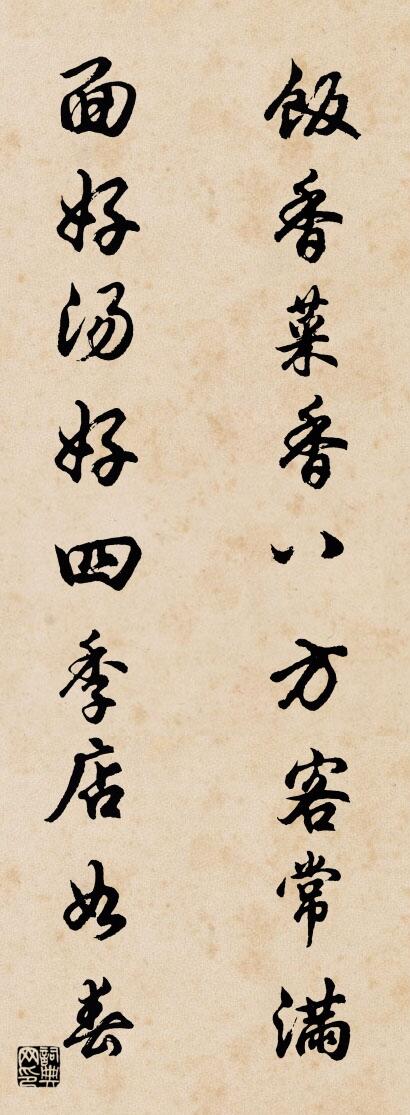 饭香菜香八方客常满
面好汤好四季店如春
詞典
网印